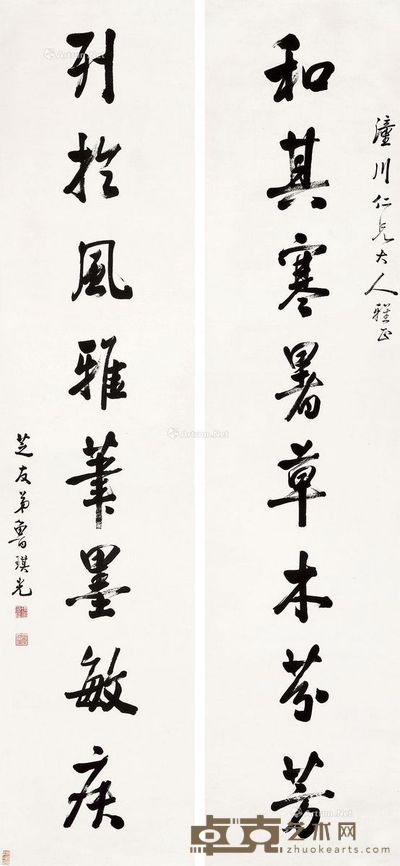 潼川仁兄大人雅正
和其寒暑草木芬芳
列於風雅筆墨敏疾
芝友弟魯琪光
卓克艺术网
zhuokearts.com